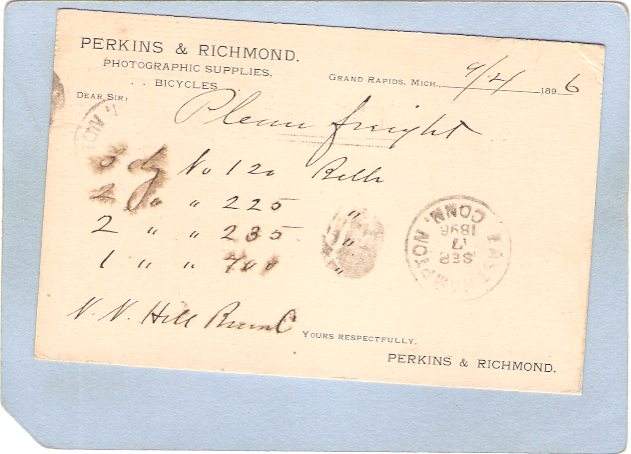 PERKINS & RICHMOND.
PHOTOGRAPHIC SUPPLIES,
. . BICYCLES
GRAND RAPIDS, MICH. 9/4 1896
DEAR SIR:
Please freight
3 dz No 120 Bells
2 " " 225 "
2 " " 235 "
1 " " 700 "
EAST HAMPTON
CONN.
SEP
7
1896
N. N. Hill Brass Co
YOURS RESPECTFULLY,
PERKINS & RICHMOND.